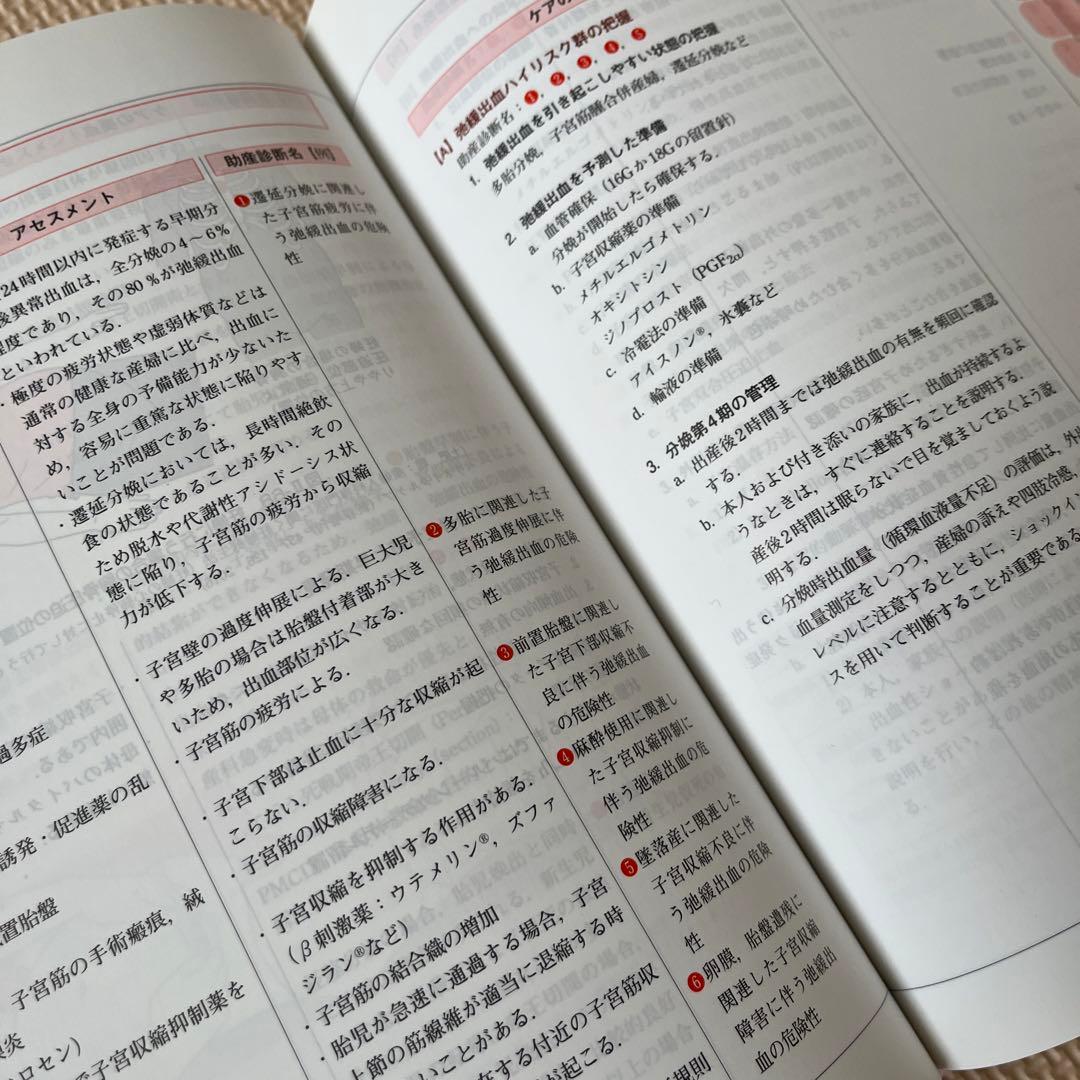 アセスメント
24時間以内に発症する早期分
後異常出血は，全分娩の4～6％
程度であり，その80％が弛緩出血
といわれている．
・極度の疲労状態や虚弱体質などは
通常の健康な産婦に比べ，出血に
対する全身の予備能力が少ないた
め，容易に重篤な状態に陥りやす
いことが問題である．
・遷延分娩においては，長時間絶飲
食の状態であることが多い．その
ため脱水や代謝性アシドーシス状
態に陥り，子宮筋の疲労から収縮
力が低下する．
・子宮壁の過度伸展による．巨大児
や多胎の場合は胎盤付着部が大き
いため，出血部位が広くなる．
・子宮筋の疲労による．
・子宮下部は止血に十分な収縮が起
こらない．
・子宮筋の収縮障害になる．
・子宮収縮を抑制する作用がある．
（β刺激薬：ウテメリン®，ズファ
ジラン®など）
・子宮筋の結合織の増加
・胎児が急速に通過する場合，子宮
上節の筋線維が適当に退縮する時
いことがある．
在する付近の子宮筋収
が起こる．
規則
過多症
誘発：促進薬の乱
置胎盤
子宮筋の手術瘢痕，絨
炎
ロセン）
で子宮収縮抑制薬を
助産診断名【例】
❶遷延分娩に関連し
た子宮筋疲労に伴
う弛緩出血の危険
性
❷多胎に関連した子
宮筋過度伸展に伴
う弛緩出血の危険
性
❸前置胎盤に関連し
た子宮下部収縮不
良に伴う弛緩出血
の危険性
❹麻酔使用に関連し
た子宮収縮抑制に
伴う弛緩出血の危
険性
❺墜落産に関連した
子宮収縮不良に伴
う弛緩出血の危険
性
❻卵膜，胎盤遺残に
関連した子宮収縮
障害に伴う弛緩出
血の危険性
ケアの
【A】弛緩出血ハイリスク群の把握
助産診断名：❶，❷，❸，❹，❺
1．弛緩出血を引き起こしやすい状態の把握
多胎分娩，子宮筋腫合併産婦，遷延分娩など
2．弛緩出血を予測した準備
a．血管確保（16Gか18Gの留置針）
分娩が開始したら確保する．
b．子宮収縮薬の準備
メチルエルゴメトリン
オキシトシン
ジノプロスト（PGF2α）
c．冷罨法の準備
アイスノン®，氷嚢など
d．輸液の準備
3．分娩第4期の管理
a．出産後2時間までは弛緩出血の有無を頻回に確認
する．
b．本人および付き添いの家族に，出血が持続するよ
うなときは，すぐに連絡することを説明する．
産後2時間は眠らないで目を覚ましておくよう説
明する．
c．分娩時出血量（循環血液量不足）の評価は，外出
血量測定をしつつ，産婦の訴えや四肢冷感，
レベルに注意するとともに，ショックイン
スを用いて判断することが重要である